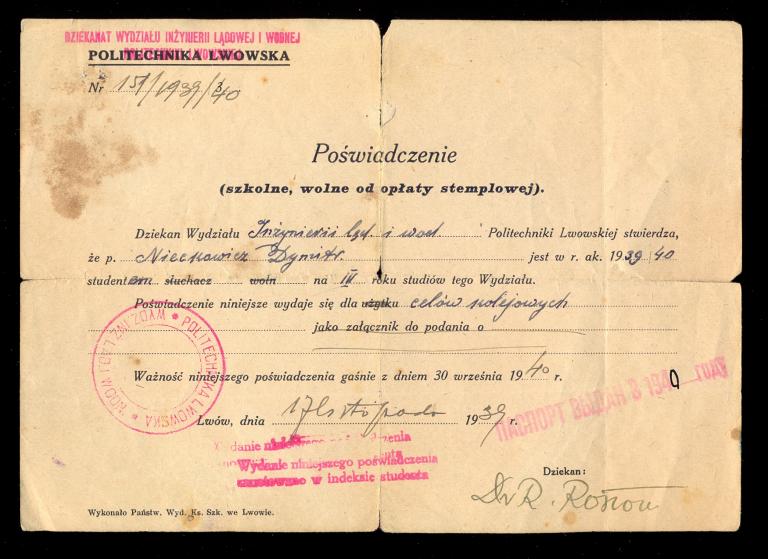 DZIEKANAT WYDZIAŁU INŻYNIERII LĄDOWEJ I WODNEJ
POLITECHNIKI LWOWSKIEJ
POLITECHNIKA LWOWSKA
Nr 151/1939/40
Poświadczenie
(szkolne, wolne od opłaty stemplowej).
Dziekan Wydziału Inżynierii Ląd. i wod. Politechniki Lwowskiej stwierdza,
że p. Niechowicz Dymitr. jest w r. ak. 1939/40
studentem słuchacz woln na III roku studiów tego Wydziału.
Poświadczenie niniejsze wydaje się dla użytku celów kolejowych
jako załącznik do podania o
Ważność niniejszego poświadczenia gaśnie z dniem 30 września 1940 r.
Lwów, dnia 17 listopada 1939 r.
WYDZ. INŻ. LĄD. I WODN. * POLITECHNIKA LWOWSKA *
ПАСПОРТ ВЫДАН В 1940 ГОДУ
Wydanie niniejszego poświadczenia
w indeksie studenta
Dziekan:
Dr R.
Wykonało Państw. Wyd. Ks. Szk. we Lwowie.